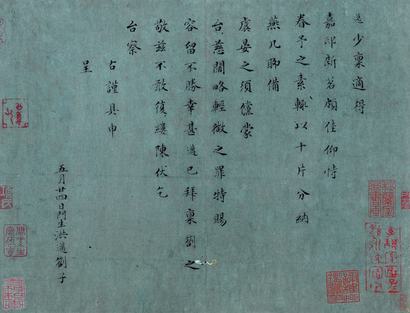 适少稟適得
嘉邸新茗頗佳仰恃
眷予之素輒以十片分納
燕几聊備
虞宴之須儻蒙
台慈闊略輕微之罪特賜
容留不勝幸甚適已拜稟劄之
敬茲不敢復縷陳伏乞
台察
右謹具申
呈
五月廿四日門生洪适劄子